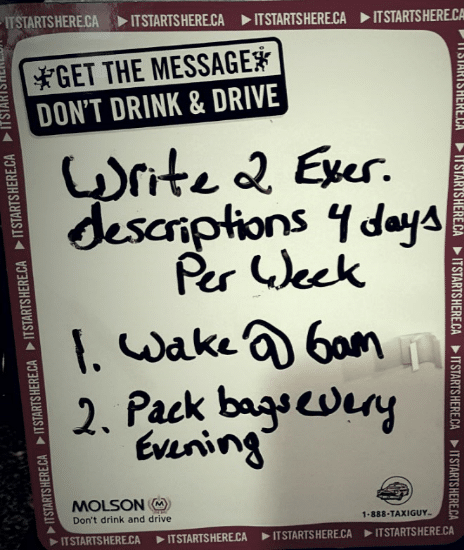 ITSTARTSHERE.CA ▶ ITSTARTSHERE.CA ▶ ITSTARTSHERE.CA ▶ ITSTARTSHERE.CA
GET THE MESSAGE
DON'T DRINK & DRIVE
Write 2 Exer.
descriptions 4 days
Per Week
1. Wake @ 6am
2. Pack bags every
Evening
MOLSON
Don't drink and drive
1·888·TAXIGUY
ITSTARTSHERE.CA ▶ ITSTARTSHERE.CA ▶ ITSTARTSHERE.CA ▶ ITSTARTSHERE.CA
ITSTARTSHERE.CA ▶ ITSTARTSHERE.CA ▶ ITSTARTSHERE.CA ▶ ITSTARTSHERE.CA
ITSTARTSHERE.CA ▶ ITSTARTSHERE.CA ▶ ITSTARTSHERE.CA ▶ ITSTARTSHERE.CA